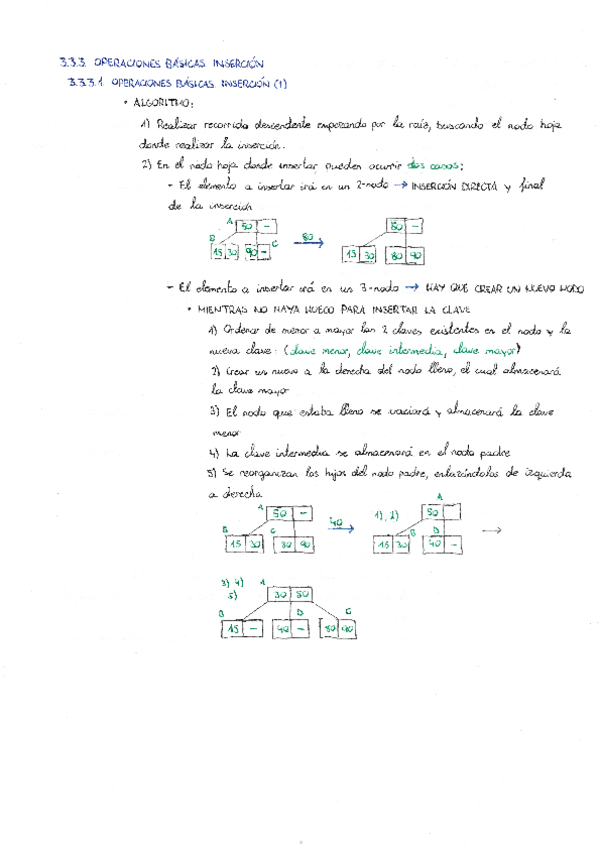 3.3.3. OPERACIONES BÁSICAS. INSERCIÓN
3.3.3.1. OPERACIONES BÁSICAS. INSERCIÓN (1)
• ALGORITMO:
1) Realizar recorrido descendente empezando por la raíz, buscando el nodo hoja
donde realizar la inserción.
2) En el nodo hoja donde insertar, pueden ocurrir dos casos:
- El elemento a insertar irá en un 2-nodo → INSERCIÓN DIRECTA y final
de la inserción
A 50 - 80 → 50 -
B 15 30 90 - C 15 30 80 90
- El elemento a insertar irá en un 3-nodo → HAY QUE CREAR UN NUEVO NODO
• MIENTRAS NO HAYA HUECO PARA INSERTAR LA CLAVE
1) Ordenar de menor a mayor las 2 claves existentes en el nodo y la
nueva clave: (clave menor, clave intermedia, clave mayor)
2) Crear un nuevo a la derecha del nodo lleno, el cual almacenará
la clave mayor
3) El nodo que estaba lleno se vaciará y almacenará la clave
menor
4) La clave intermedia se almacenará en el nodo padre
5) Se reorganizan los hijos del nodo padre, enlazándolos de izquierda
a derecha
A 50 - 40 → 1), 2) A 50 →
B 15 30 C 80 90 15 30 B D 40 -
3) 4) A 30 50
5)
B 15 - D 40 - C 80 90